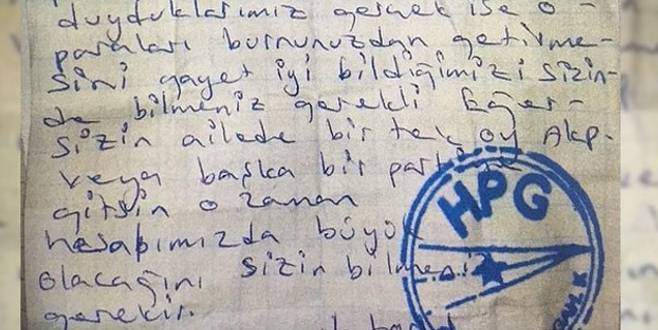 duyduklarımız gerçek ise o -
paraları burnunuzdan getirme-
sini gayet iyi bildiğimizi sizin-
de bilmeniz gerekli Eğer -
sizin ailede bir tek oy AKP.
veya başka bir
gitsin o zaman
hesabımızda büyük
olacağını sizin
gerekir.
HPG